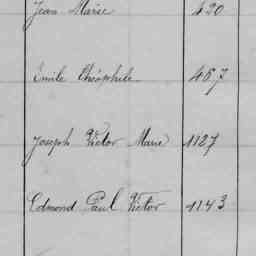 Jean Marie 420
Emile Théophile 467
Joseph Victor Marie 1127
Edmond Paul Victor 1143